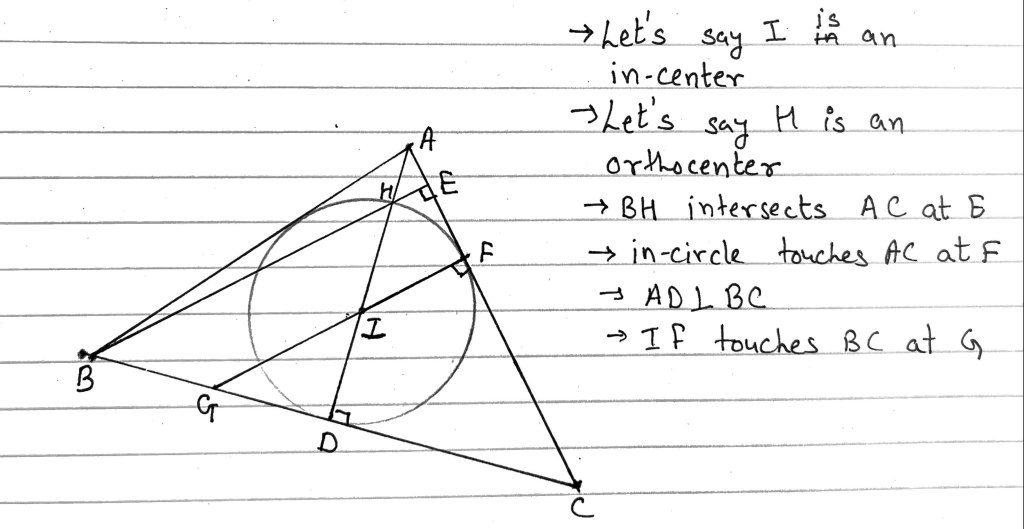 → Let's say I is an
in-center
→ Let's say H is an
orthocenter
→ BH intersects AC at E
→ in-circle touches AC at F
→ AD ⊥ BC
→ IF touches BC at G
A
H
E
F
I
B
G
D
C